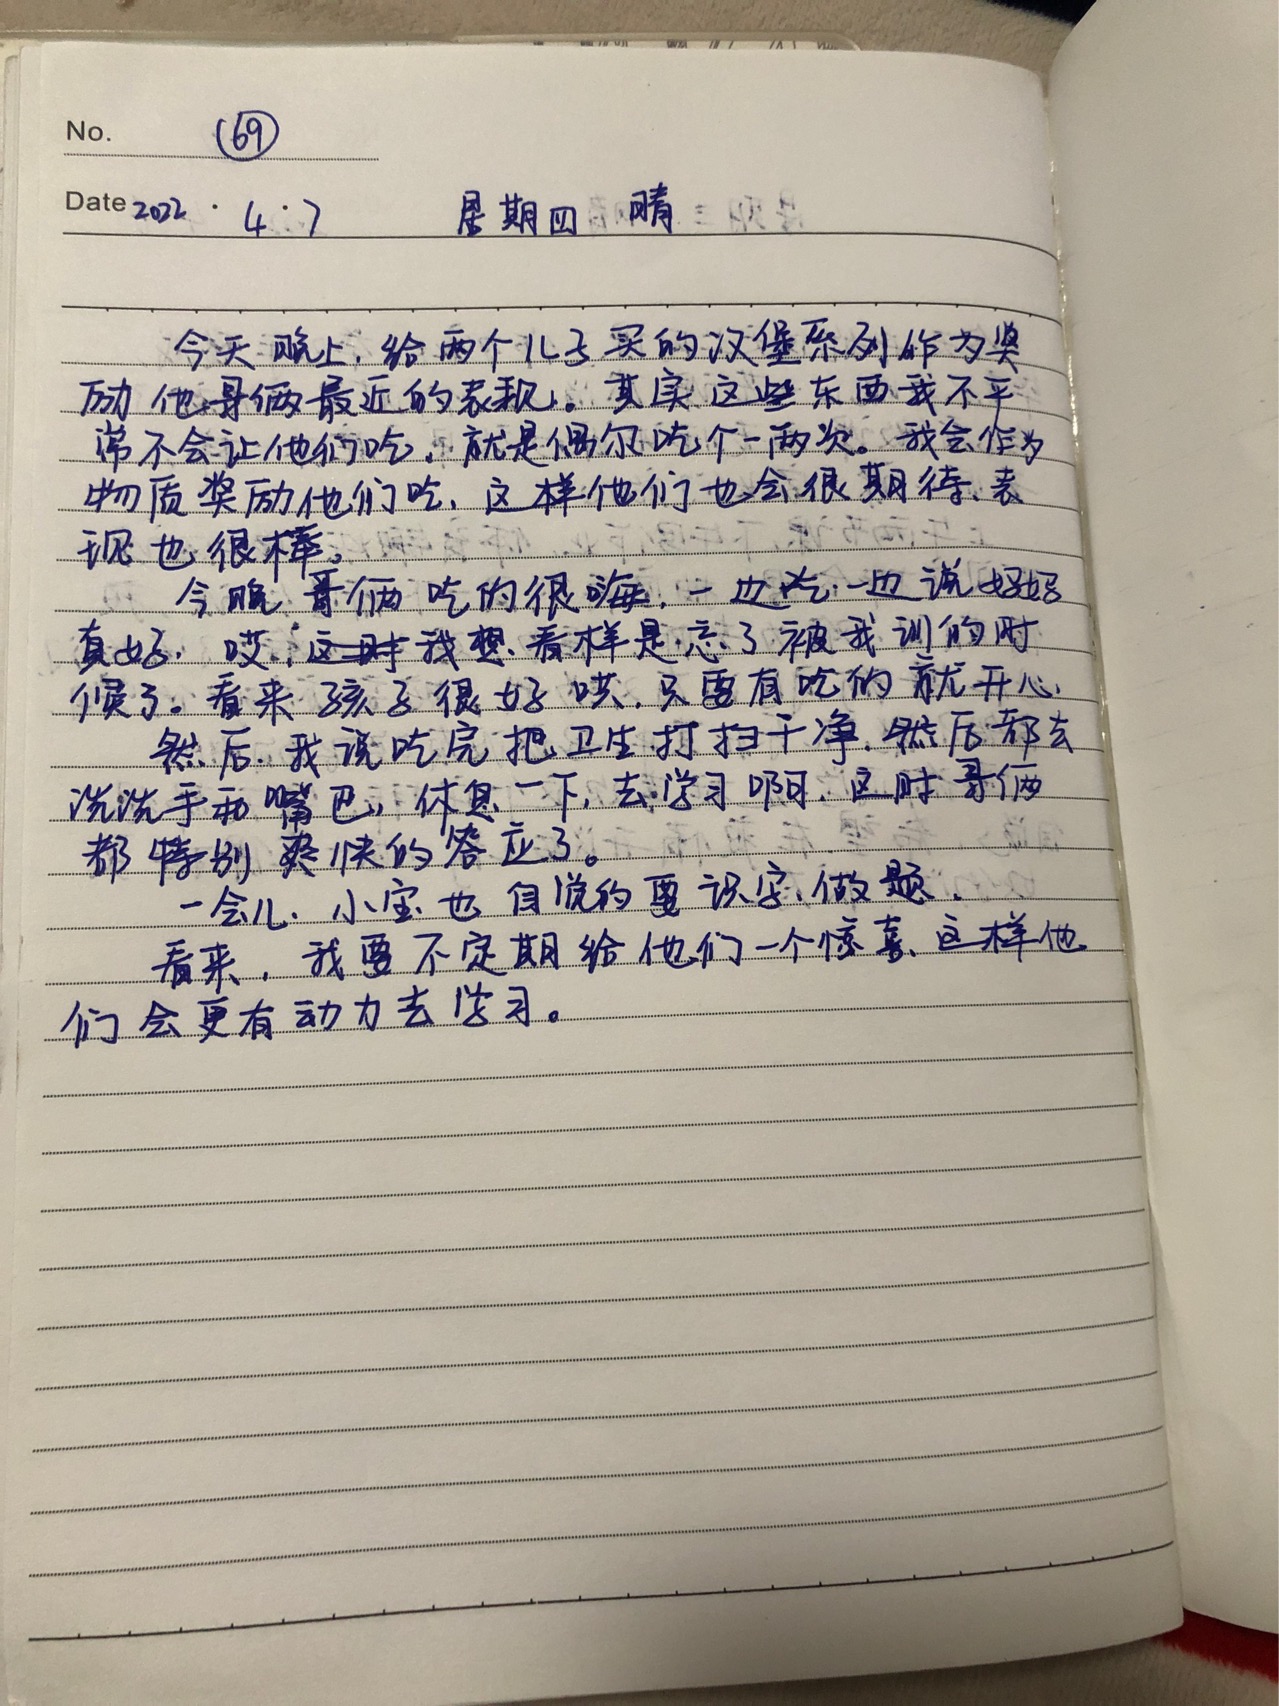 No. 69
Date 2022 · 4 · 7 星期四 晴
今天晚上,给两个儿子买的汉堡系列作为奖
励他哥俩最近的表现。其实这些东西我不平
常不会让他们吃,就是偶尔吃个一两次。我会作为
物质奖励他们吃,这样他们也会很期待、表
现也很棒。
今晚哥俩吃的很嗨,一边吃一边说好好
真好,哎,这时我想看样是忘了被我训的时
候了。看来孩子很好哄,只要有吃的就开心,
然后,我说吃完把卫生打扫干净,然后都去
洗洗手和嘴巴,休息一下,去学习啊,这时哥俩
都特别爽快的答应了。
一会儿,小宝也自觉的要识字、做题,
看来,我要不定期给他们一个惊喜、这样他
们会更有动力去学习。